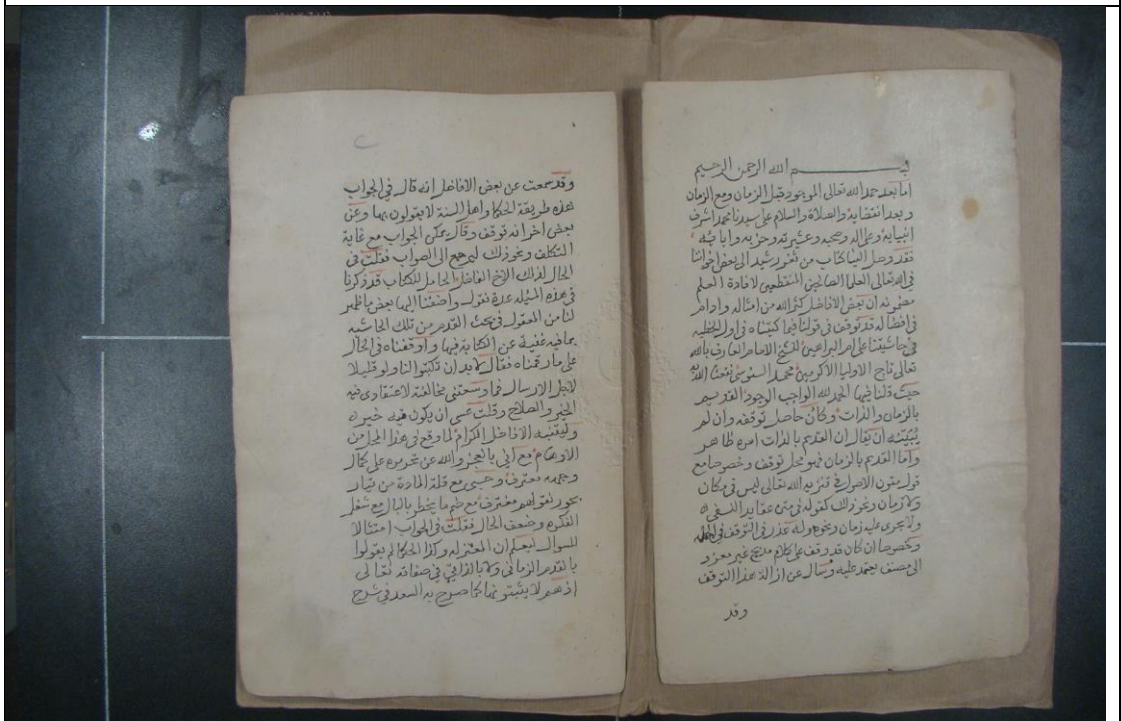 بسم الله الرحمن الرحيم
اما بعد حمد الله تعالى الموجود قبل الزمان ومع الزمان
وبعد انقضايه والصلاة والسلام على سيدنا محمد اشرف
انبيايه وعلى اله وصحبه وعشيرته وحزبه واحبابه
فقد وصل الينا كتاب من ثغر رشيد الى بعض اخواننا
في الله تعالى العلما الصالحين المنقطعين لافادة العلم
مضمونه ان بعض الافاضل كثر الله من امثاله وادام
في افضاله قد توقف في قولنا فيما كتبناه في اول الخطبه
في حاشيتنا على ام البراهين للشيخ الامام العارف بالله
تعالى تاج الاوليا الاكرمين محمد السنوسي نفعنا الله به
حيث قلنا فيها الحمد لله الواجب الوجود القديم
بالزمان والذات وكان حاصل توقفه وان لم
يبينه ان يقال ان القديم بالذات امره ظاهر
واما القديم بالزمان فهو محل توقف وخصوصا مع
قول متون الاصول في تنزيه الله تعالى ليس في مكان
ولا زمان ونحو ذلك كقوله في متن عقايد النسفي
ولا يجرى عليه زمان ونحوه وله عذر في التوقف في الجمله
وخصوصا ان كان قد وقف على كلام مدبج غير معزو
الى مصنف يعتمد عليه وسال عن ازالة هذا التوقف
وقد
وقد سمعت عن بعض الافاضل انه قال في الجواب
هذه طريقة الحكما واهل السنة لا يقولون بها وعن
بعض اخر انه توقف وقال يمكن الجواب مع غاية
التكلف ونحو ذلك ليرجع الى الصواب فقلت في
الحال لذلك الاخ الفاضل الحامل للكتاب قد ذكرنا
في هذه المسيله عدة نقول واضفنا اليها بعض ما ظهر
لنا من المعقول في بحث القدم من تلك الحاشيه
بما فيه غنية عن الكتابة فيها واوقفناه في الحال
على ما رقمناه فقال لا بد ان تكتبوا لنا ولو قليلا
لاجل الارسال فما وسعتني مخالفته لاعتقادي فيه
الخير والصلاح وقلت عسى ان يكون فيه خيره
وليتنبه الافاضل الكرام لما وقع في هذا المحل من
الاوهام مع اني بالعجز والله عن تحريره على كمال
وجهه معترف وحسبي مع قلة المادة من تيار
بحور نقولهم مغترف مع ضم ما يخطر بالبال مع شغل
الفكره وضعف الحال فقلت في الجواب امتثالا
للسوال ليعلم ان المعتزله وكذا الحكما لم يقولوا
بالقدم الزماني ولا بالذاتي في صفاته تعالى
اذ هم لا يثبتونها كما صرح به السعد في شرح